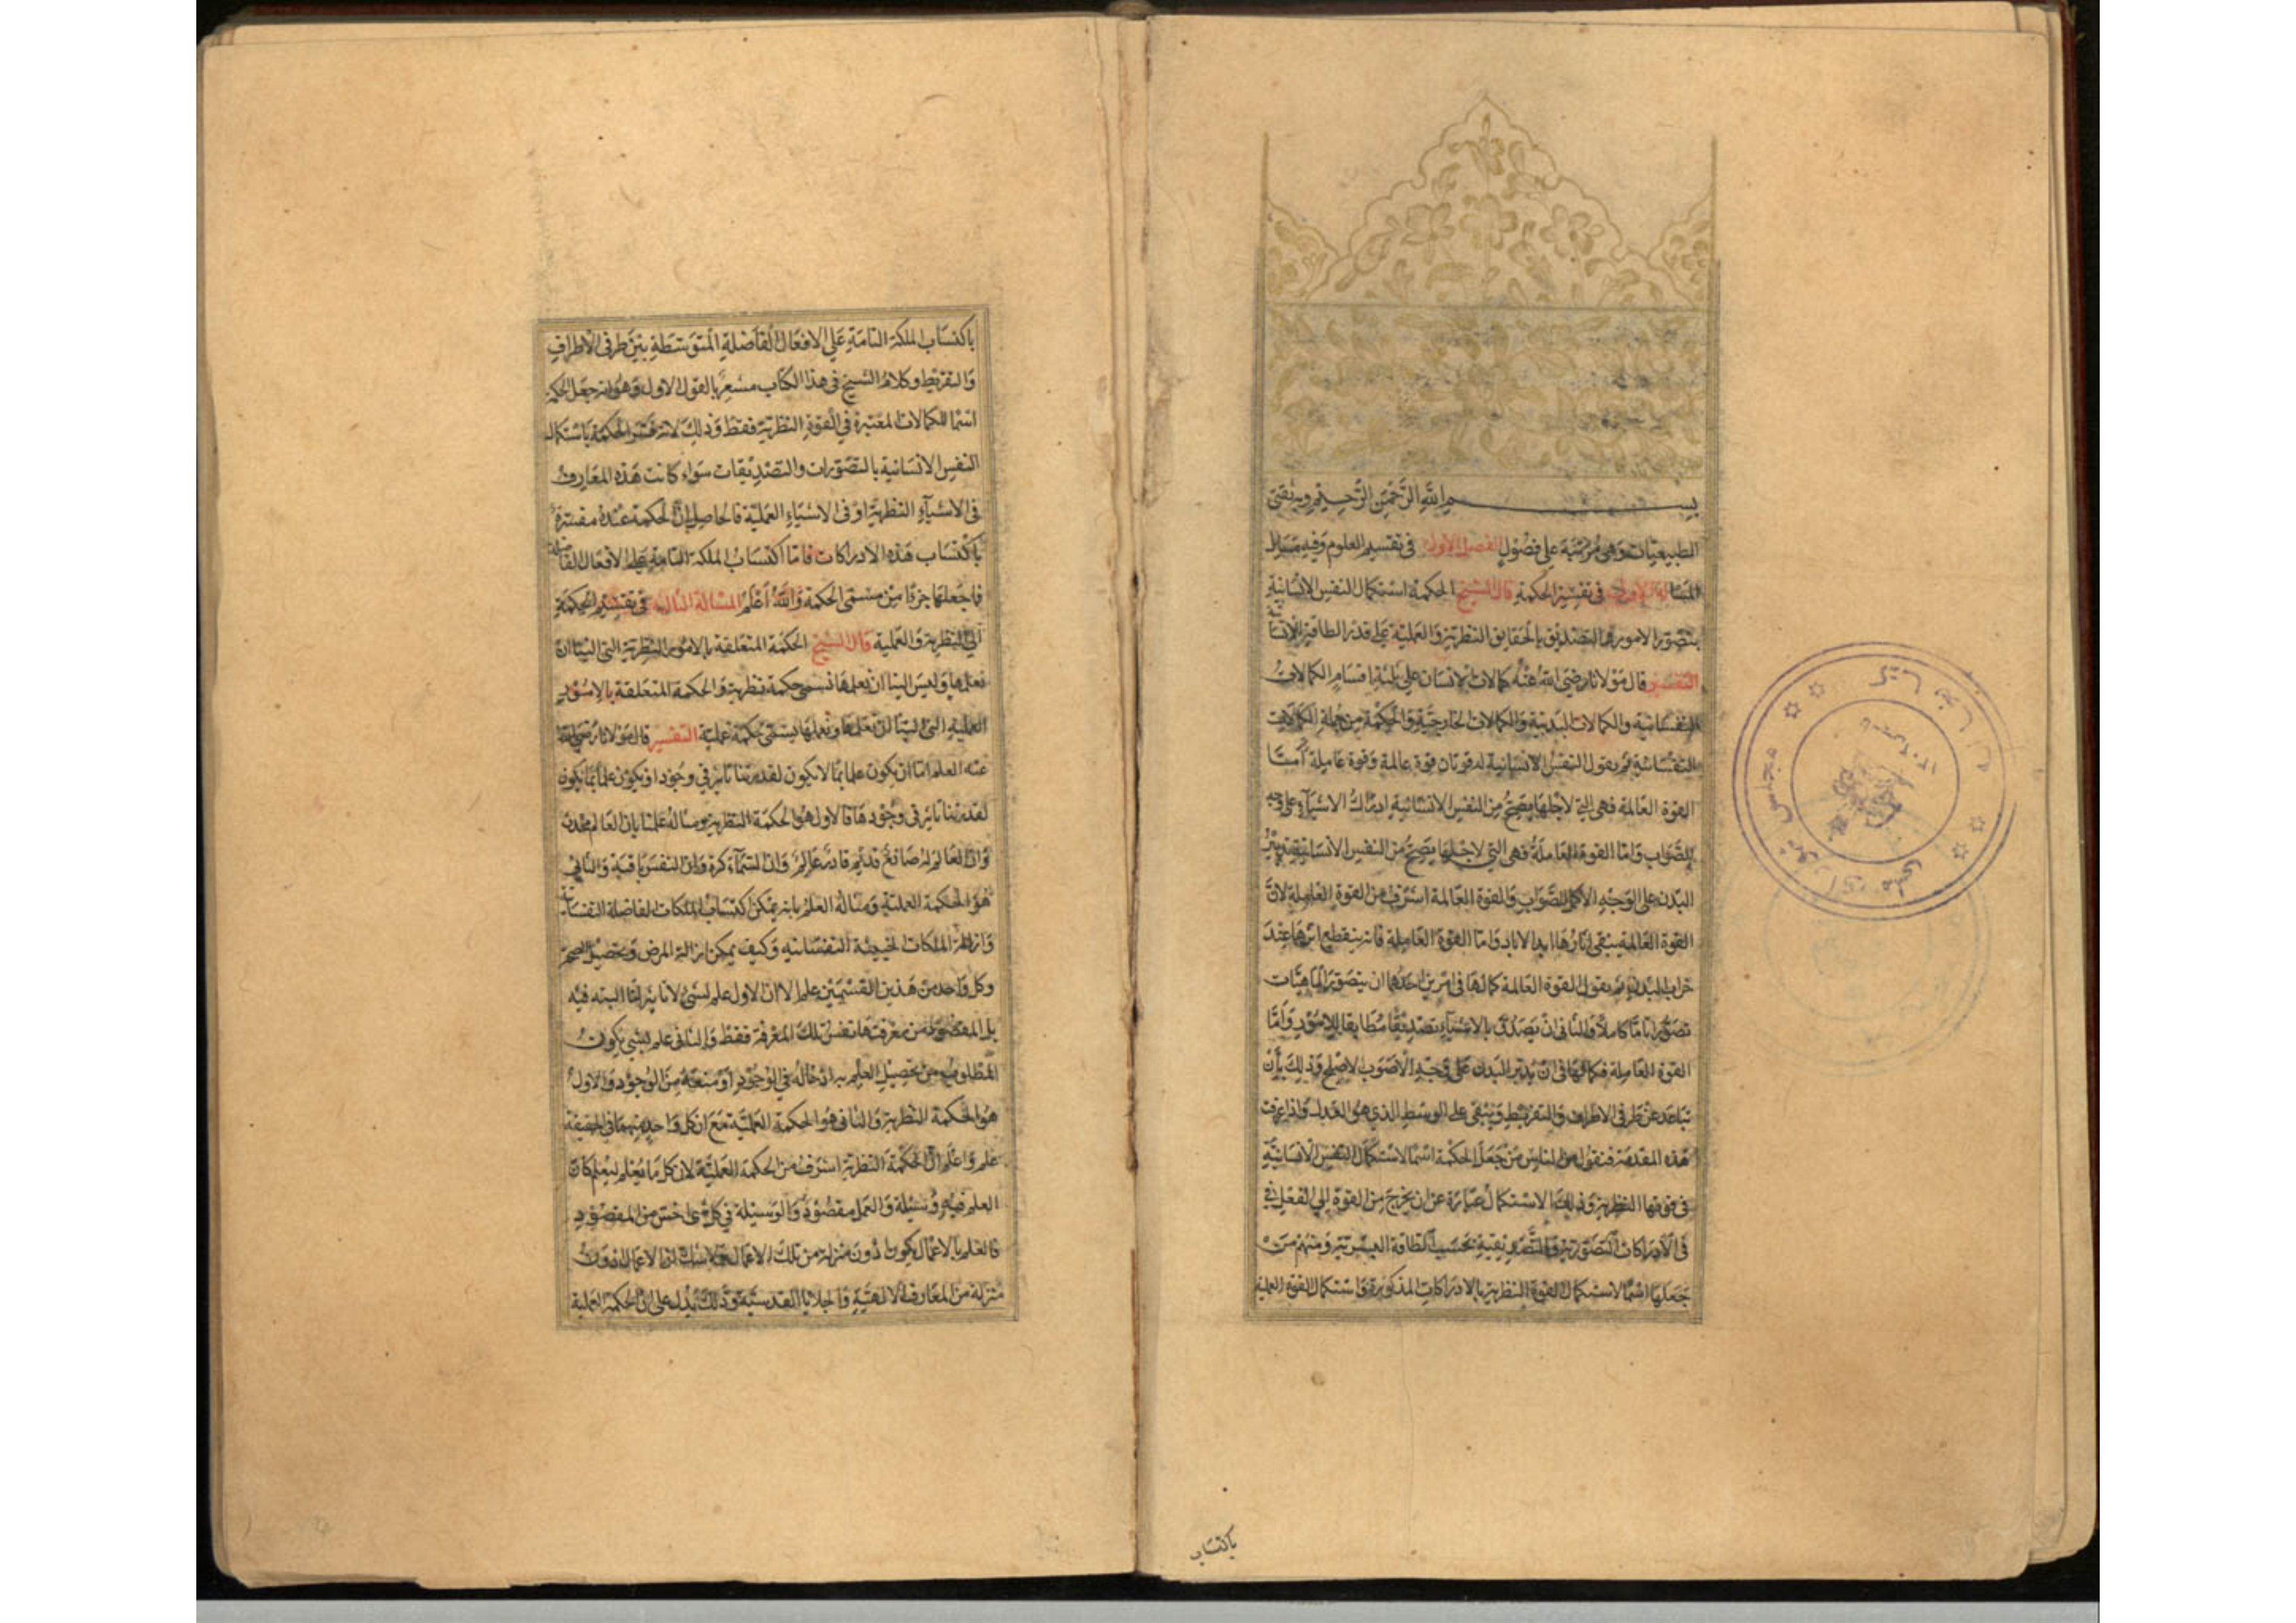 بسم الله الرحمن الرحيم وبه ثقتي
الطبيعيات وهى مرتبة على فصول الفصل الاول في تقسيم العلوم وفيه مسائل
المسألة الاولى في تفسير الحكمة قال الشيخ الحكمة استكمال النفس الانسانية
بتصور الامور والتصديق بالحقايق النظرية والعملية على قدر الطاقة الانسانية
التفسير قال مولانا رضي الله عنه كمالات الانسان على ثلثة اقسام الكمالات
النفسانية والكمالات البدنية والكمالات الخارجية والحكمة من جملة الكمالات
النفسانية ثم يقول النفس الانسانية له قوتان قوة عالمة وقوة عاملة أمّا
القوة العالمة فهى التي لاجلها يصحّ من النفس الانسانية ادراك الاشياء على وجه
الصواب واما القوة العاملة فهى التي لاجلها يصحّ من النفس الانسانية تدبير
البدن على الوجه الاكمل الصواب والقوة العالمة اشرف من القوة العاملة لانّ
القوة العالمة يبقى اثارها ابد الاباد واما القوة العاملة فانه ينقطع اثرها عند
خراب البدن ثم يقول القوة العالمة كمالها فى امرين احدهما ان يتصور الماهيّات
تصوّرا تامّا كاملا والثاني انّ يصدّق بالاشياء تصديقا مطابقا للامور وامّا
القوة العاملة فكمالها فى انّ يدبّر البدن على وجه الاصوب الاصلح وذلك بأن
تباعد عن طرفى الافراط والتفريط ويبقى على الوسط الذي هو العدل واذا عرفت
هذه المقدمة فنقول من الناس من جعل الحكمة اسما لاستكمال النفس الانسانيّة
فى قوتها النظرية وذلك الاستكمال عبارة عن ان يخرج من القوة الى الفعل في
فى الادراكات التصورية والتصديقية بحسب الطاقة البشرية ومنهم من
جعلها اسما لاستكمال القوة النظرية بالادراكات المذكورة واستكمال القوة العملية
باكتساب
باكتساب الملكة التامّة على الافعال الفاضلة المتوسّطة بين طرفى الاطراف
والتفريط وكلام الشيخ فى هذا الكتاب مشعر بالقول الاول وهو انه جعل الحكمة
اسما للكمالات المعتبرة في القوة النظرية فقط وذلك لانه فسّر الحكمة باستكمال
النفس الانسانية بالتصورات والتصديقات سواء كانت هذه المعارف
فى الاشياء النظرية او فى الاشياء العملية فالحاصل انّ الحكمة عنده مفسّرة
باكتساب هذه الادراكات فاما اكتساب الملكة التامة على الافعال الفاضلة
فما جعلها جزءًا من مسمّى الحكمة والله اعلم المسألة الثانية في تقسيم الحكمة
الى النظرية والعملية قال الشيخ الحكمة المتعلقة بالامور النظرية التي الينا انّ
نعلمها وليس الينا ان نعملها تسمى حكمة نظرية والحكمة المتعلقة بالامور
العملية التي الينا ان نعلمها ونعملها يسمّى حكمة عمليّة التفسير قال مولانا رضي الله
عنه العلم امّا ان يكون علما بما لا يكون لقدرتنا تاثير في وجود او يكون علما بما يكون
لقدرتنا تاثير في وجودها فالاول هو الحكمة النظرية ومثاله علمنا بان العالم محدث
وانّ العالم له صانع قديم قادر عالم وان السماء كرة وانّ النفس باقية والثاني
هو الحكمة العملية ومثاله العلم بانه يمكن اكتساب الملكات الفاضلة النفسانية
وازالة الملكات الخبيثة النفسانية وكيف يمكن ازالة المرض وتحصيل الصحّة
وكل واحد من هذين القسمين علم الا انّ الاول علم لشئ لا تاثير لنا البته فيه
بل المقصود من معرفتها نفس تلك المعرفة فقط والثاني علم بشئ يكون
المطلوب من تحصيل العلم به ادخاله في الوجود او منعه من الوجود والاول
هو الحكمة النظرية والثاني هو الحكمة العمليّة مع ان كل واحد منهما في الحقيقة
علم واعلم انّ الحكمة النظرية اشرف من الحكمة العمليّة لان كل ما يُعلم ليُعمل كان
العلم فيه وسيلة والعمل مقصود والوسيلة في كل شئ اخسّ من المقصود
فالعلم بالاعمال يكون دون منزلة من تلك الاعمال انّ الاعمال دون
منزلة من المعارف الالهيّة والجلايا القدسيّة وذلك يدلّ على انّ الحكمة العملية
كتابخانه مجلس شورای ملی